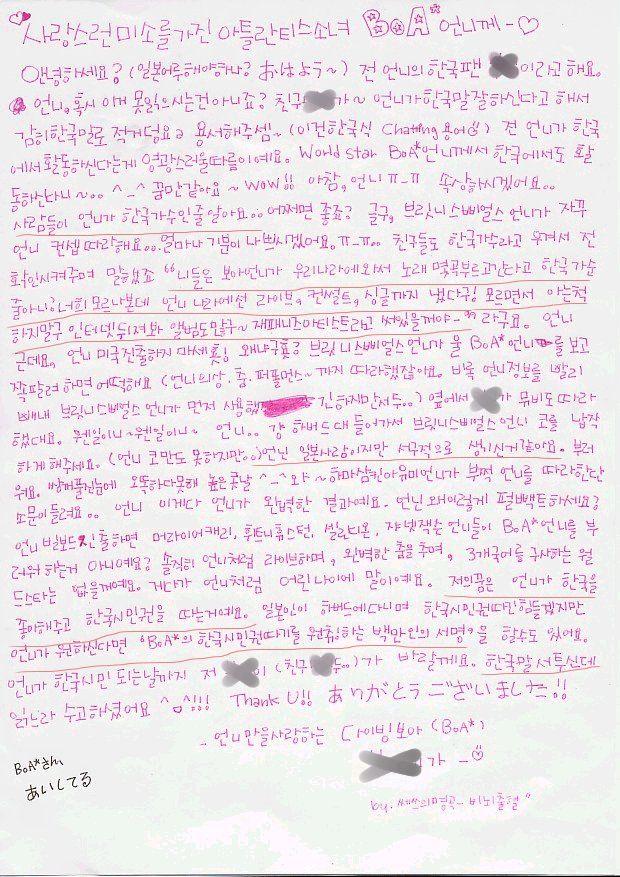 사랑스런 미소를가진 아틀란티스소녀 BoA* 언니께-♡
안녕하세요? (일본어루해야하나? おはよう~) 전 언니의 한국팬 이라고해요.
언니, 혹시 이게 못읽으시는건 아니죠? 친구 가~ 언니가 한국말 잘하신다고 해서
감히 한국말로 적거덩요? 용서해주셈~ (이건한국식 Chatting용어) 전 언니가 한국
에서 활동하신다는게 영광스러울따름이예요. World star BoA* 언니께서 한국에서도 활
동하신다니~.. ^_^ 꿈만같아요~ WOW!! 아참, 언니 ㅠ_ㅠ 속상하시겠어요..
사람들이 언니가 한국가수인줄알아요.. 어쩌면 좋죠? 글구, 브릿니스삐얼스언니가 자꾸
언니 컨셉따라해요.. 얼마나 기분이 나쁘시겠어요. ㅠ_ㅠ.. 친구들도 한국가수라고 우겨서 전
확인시켜주며 말했죠 "니들은 보아언니가 우리나라에와서 노래 몇곡부르고간다고 한국가순
줄아니? 너희 모르나본데 언니 나라에선 라이브, 컨썰트, 싱글까지 냈다구! 모르면서 아는척
하지말구 인터넷뒤져봐 앨범도말구~ 재패니즈아티스트라고 써있을꺼야-" 라구요. 언니
근데요, 언니 미국진출하지 마세효! 왜냐구효? 브릿니스삐얼스언니가 울 BoA* 언니를 보고
쪽팔려 하면 어떡해요 (언니의상. 춤. 퍼폴먼스~ 까지 따라했잖아요. 비록 언니정보를 빨리
빼내 브릿니스삐얼스언니가 먼저 사용했 긴하지만서두..) 옆에서 가 뮤비도따라
했대요. 웬일이니~ 웬일이니~ 언니.. 걍 하버드대 들어가서 브릿니스삐얼스언니 코를 납작
하게 해주세요. (언니 코만도 못하지만..) 언닌 일본사람이지만 서구적으로 생기신거같아요. 부러
워요. 오똑하다못해 높은콧날 ^_^ 와~ 하마삼킨아유미언니가 부쩍 언니를 따라한단
소문이들려요.. 언니 이게다 언니가 완벽한 결과예요. 언닌 왜이렇게 펄뻑트하세요?
언니 빌보드진출하면 머라이어캐리, 휘트니휴스턴, 셀린디온, 쟈넷잭슨언니들이 BoA* 언니를 부
러워하는거 아니예요? 솔직히 언니처럼 라이브하며, 완벽한 춤을추며, 3개국어를 구사하는 월
드스타는 없을께예요. 게다가 언니처럼 어린나이에 말이예요. 저의꿈은 언니가 한국을
좋아해주고 한국시민권을 따는거예요. 일본인이 하버드에다니며 한국시민권따긴힘들겠지만
언니가 원하신다면 "BoA*의 한국시민권따기를 원하는 백만인의 서명"을 할수도 있어요.
언니가 한국시민 되는날까지 저 이 (친구 두..)가 바랄게요. 한국말 서투신데
읽는라 수고하셨어요 ^ㅁ^!!! Thank U!! ありがとうございました!!
- 언니만을사랑하는 다이빙보아 (BoA*)
가 -
BoA*さん,
あいしてる
by. 쎄쓰의명곡- 비뇌출혈"